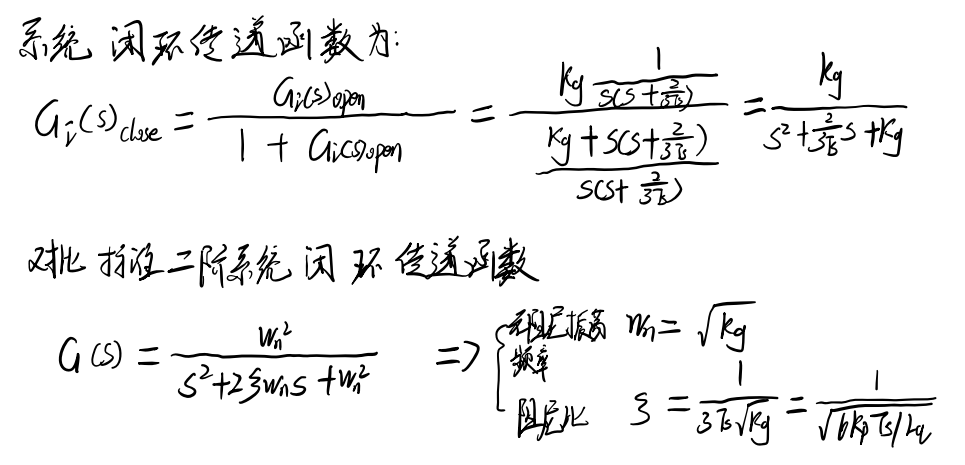 系统闭环传递函数为:
G_i(s)_close = G_i(s)_open / (1 + G_i(s)_open) = (Kg 1/(s(s+2/(3Ts)))) / ((Kg + s(s+2/(3Ts))) / (s(s+2/(3Ts)))) = Kg / (s² + 2/(3Ts) s + Kg)
对比标准二阶系统闭环传递函数
G(s) = Wn² / (s² + 2ξWns + Wn²) => { 无阻尼振荡频率 Wn = √Kg
阻尼比 ξ = 1/(3Ts√Kg) = 1/√(6KpTs/Lq)